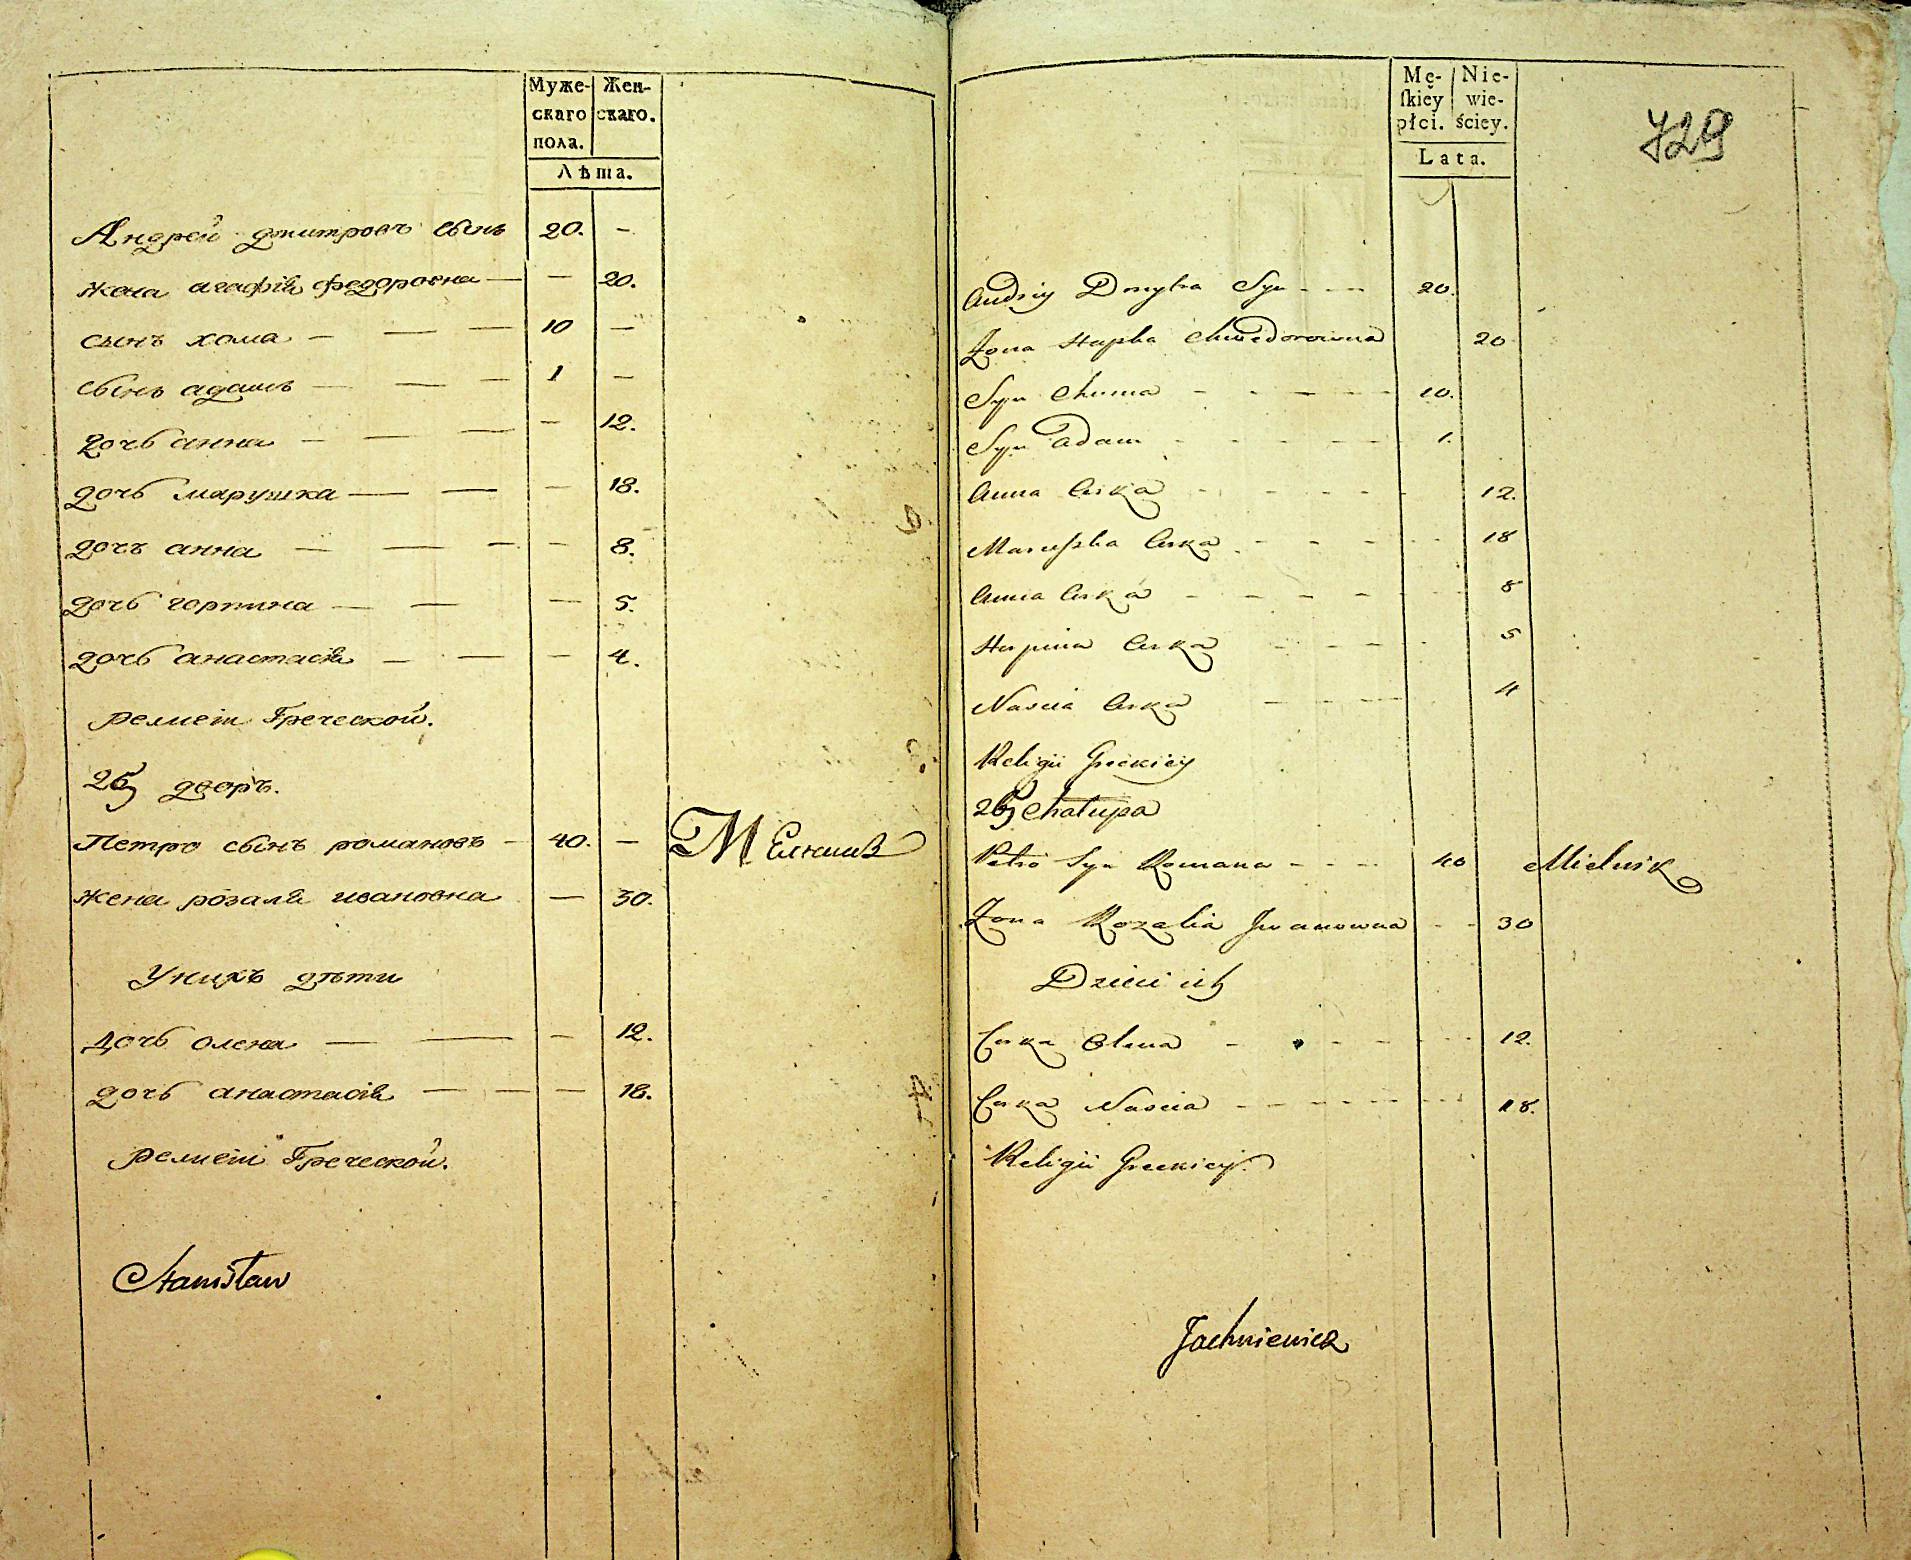 Муже-
скаго
пола.
Жен-
скаго.
Лѣта.
Андрей дмитровъ сынъ 20. —
жена агафія федоровна — — 20.
сынъ хома — — — 10 —
сынъ адамъ — — — 1 —
дочь анна — — — — 12.
дочь марушка — — — 18.
дочъ анна — — — — 8.
дочь горпина — — — 5.
дочь анастасія — — — 4.
релиеіи Греческой.
25 дворъ.
Петро сынъ романовъ — 40. —
жена розаля ивановна — 30.
Унихъ дѣти
дочь олена — — — 12.
дочь анастасія — — — 18.
релиеіи Греческой.
Stanisław
Mę-
skiey
płci.
Nie-
wie-
ściey.
Lata.
729
Andriy Dmytra Syn - - - 20.
Żona Hapka Chwedorowna 20
Syn Chuma - - - - 10.
Syn Adam - - - - 1.
Anna Curka - - - - 12.
Maruszka Curka - - - - 18
Anna Curka - - - - 8
Harpina Curka - - - - 5
Nascia Curka - - - 4
Religii Greckiey
25 Chałupa
Petro Syn Romana - - - 40 Mielnik
Żona Rozalia Jwanowna - - 30
Dzieci ich
Curka Olena - - - - 12.
Curka Nascia - - - - 18.
Religii Greckiey.
Jachniewicz